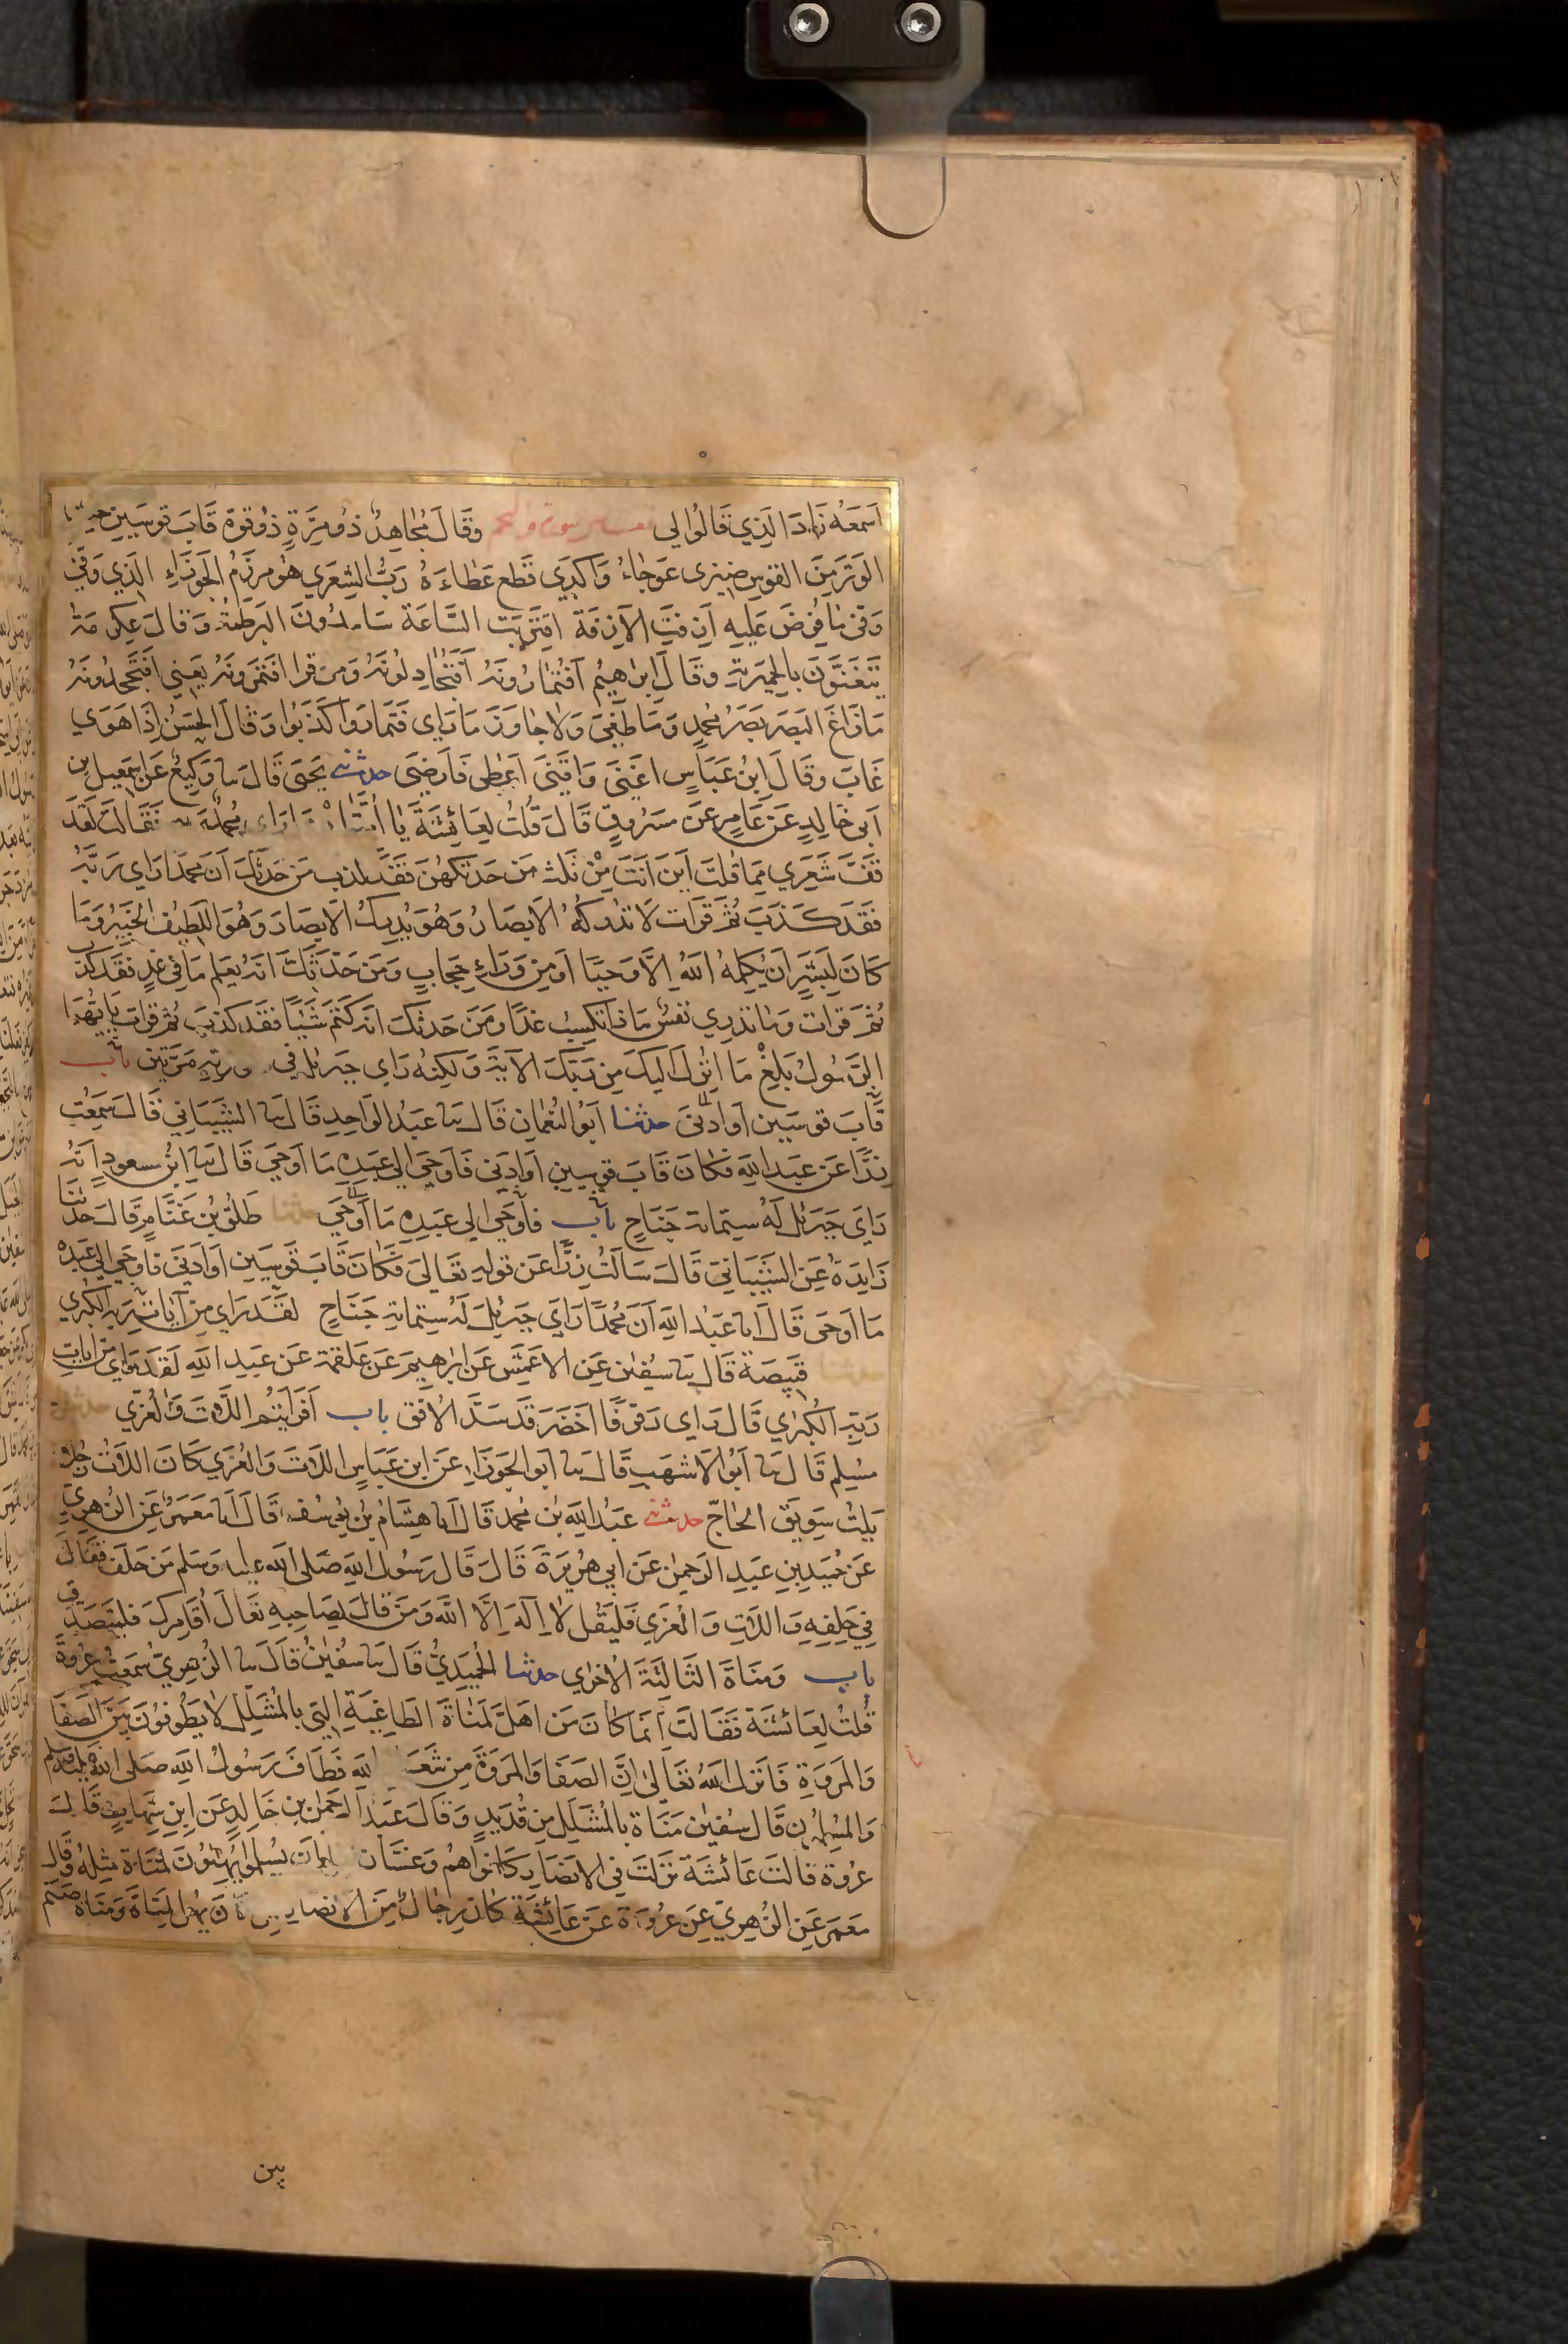 اَسمَعْهُ زَادَ الَّذِي قَالُوا لِي سورة والنجم وَقَالَ مُجَاهِدٌ ذُو مِرَّةٍ ذُو قوة قَابَ قوسَينِ حيث
الوَتَر مِنَ القَوسِ ضِيزى عَوجَاءُ وَاَكدَي قَطع عَطَاءَهُ رَبُّ الشِعرَي هو مرزَمُ الجَوزَاءِ الَّذِي وَفّي
وَفّى مَا فُرِضَ عَلَيهِ اَزِفَتِ الآزِفَة اقتَرَبَت السَّاعَة سَامدُونَ البَرطَمَةُ وَقَالَ عِكرِمَة
يَتَغَنَّونَ بِالحِميَرية وقَالَ اِبرَاهِيمُ اَفَتُمَارُونَهُ اَفَتُجَادِلُونَهُ وَمَن قرا افَتَمرُونَهُ يَعنِي اَفَتَجحَدُونَهُ
مَا زَاغَ البَصَر بَصَرُ محمدٍ وَمَا طَغَى وَلَا جَاوَزَ مَا رَاي فَتَمَارَوا كَذَّبُوا وَقَالَ الحَسَنُ اِذَا هَوَي
غَابَ وقَالَ ابنُ عَبَاسٍ اغنَى وَاقنَى اَعطى فَارضَى حدثنى يَحيَى قَالَ ثنا وَكِيعٌ عَن اِسمَعِيل بن
اَبى خَالِدٍ عَن عَامِرٍ عَن مَسرُوقٍ قَالَ قُلتُ لِعَائِشَةَ يَا اُمَّتَاه رَاى محمد فَقَالَت لَقَد
قَفَّ شَعَرِي مِمَا قُلتَ اَينَ اَنتَ مِن ثَلث مَن حَدثَكهُنَ فَقَد كذب مَن حَدثَكَ اَنَ محمدا رَاي رَبَّهُ
فَقَد كَذَبَ ثُمَّ قَرَات لَا تُدركُهُ الاَبصَارُ وَهُوَ يُدرِكُ الاَبصَارَ وَهُوَ اللَطِيفُ الخَبِيرُ وَمَا
كَانَ لِبَشَرٍ اَن يُكَلِمهُ اللّهُ اِلَّا وَحيًا اَو مِن وَرَاءِ حِجَابٍ وَمَن حَدثَكَ اَنَهُ يَعلَم مَا فِي غدٍ فَقَد كذب
ثُمَّ قرات وَمَا تَدرِي نَفسٌ مَاذَا تَكسِبُ غَدًا وَمَن حَدثَكَ انه كَتَمَ شَيئًا فَقَد كذب ثم قرات يَايُّهَا
الرَّسُولُ بَلِّغْ مَا اُنزِلَ اِلَيكَ مِن رَبِّكَ الآية وَلَكِنهُ رَاي جِبرَئل فِي صورتِهِ مَرَّتَين باب
قَابَ قَوسَين اَو اَدنَى حدثنا اَبُو النُّعمَانِ قَالَ ثنا عَبدُ الوَاحِدِ قَالَ ثنا الشَّيبَانِي قَالَ سَمِعتُ
زِرًّا عَن عَبدِ اللّهِ فَكَانَ قَابَ قَوسَينِ اَو اَدنَى فَاَوحَى اِلَى عَبدِهِ مَا اَوحَى قَالَ ثنا ابنُ مسعود اَنَّهُ
رَاَي جِبرَئل لَهُ سِتمائة جَنَاحٍ باب فاَوحَى الى عَبدِهِ مَا اَوحَى حدثنا طَلق بنُ غَنَّامٍ قَالَ حدثَنَا
زَايِدَةُ عَنِ الشَّيبَانِي قَالَ سَاَلتُ زِرًّا عَن قولهِ تَعَالَى فَكَانَ قَابَ قَوسَينِ اَو اَدنَى فَاَوحَى اِلَى عَبدِهِ
مَا اَوحَى قَالَ انا عَبدُ اللّهِ اَنَ مُحَمدًا رَاي جِبرَئِلَ لَهُ سِتمائةِ جَنَاحٍ لَقَد رَاي مِن آيَاتِ رَبِّهِ الكُبرَي
قَبِيصَة قَالَ ثنا سُفيَان عَنِ الاَعمَشِ عَن اِبرَهِيمَ عَن عَلقَمة عَن عَبدِ اللّهِ لَقَد رَاي مِن ايَاتِ
رَبِّهِ الكُبرَي قَالَ رَاي رَفرَفًا اخضَرَ قَد سَدَّ الاُفُق باب اَفَرَايتُمُ اللَّاتَ وَالعُزّي حدثنا
مُسلِم قَالَ ثنا اَبُو الاَشهَبِ قَالَ ثنا اَبو الجَوزَاء عَن ابن عَبَاسٍ اللَاتَ وَالعُزّي كَانَ اللَاتُ رَجُلا
يَلِتُّ سَوِيقَ الحَاجِّ حدثنى عَبدُ اللّهِ بن محمد قَالَ انا هِشَامُ بن يُوسُف قَالَ انا مَعمَرٌ عَنِ الزُّهرِيِّ
عَن حُمَيدِ بنِ عَبدِ الرَحمنِ عَن اَبِي هُرَيرَةَ قَالَ قَالَ رَسُولُ اللّهِ صَلى الله عليه وَسَلم مَن حَلَفَ فَقَالَ
فِي حَلِفِهِ وَاللَّاتِ وَالعُزّي فَليَقُل لَا اِلَهَ اِلَّا اللّه وَمَن قَالَ لِصَاحِبِهِ تَعَالَ اُقَامِركَ فَليَتَصَدَّق
باب وَمَنَاةَ الثَالِثَةَ الاُخرَي حدثنا الحُمَيدِيُّ قَالَ ثنا سُفيَانُ قَالَ ثنا الزُهرِيّ سَمِعتُ عُروَةَ
قُلتُ لِعَائشَة فَقَالَت اِنَمَا كَانَ مَن اَهَلَّ لِمَنَاةَ الطَاغِيَةِ الَتِي بِالمُشَلَّل لَا يَطُوفُونَ بَينَ الصَّفَا
وَالمَروَةِ فَاَنزَلَ اللّهُ تَعَالَى اِنَّ الصَفَا وَالمَروَةَ مِن شَعَـ اللّهِ فَطَافَ رَسُولُ اللّهِ صَلى الله عليه وسلم
وَالمُسلِمُونَ قَالَ سُفيَان مَنَاة بِالمُشَلَّلِ مِن قُدَيدٍ وَقَالَ عَبدُ الرَحمَنِ بن خَالِدٍ عَنِ ابنِ شِهَابٍ قَالَ
عُروَة قَالَت عَائشَة نَزَلَت فِي الاَنصَارِ كَانُوا هُم وَغَسَّان قبل اَن يُسلِمُوا يُهِلُّونَ لِمَنَاة مِثلَهُ وَقَالَ
مَعمَر عَنِ الزُّهرِيّ عَن عُروَةَ عَن عَائشَة كَانَ رِجَالٌ مِنَ الاَنصَارِ ممن كَانَ يُهِلُّ لِمَنَاةَ وَمَنَاة صَنَم
بين